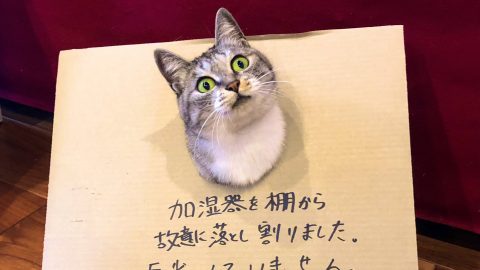 加湿器を棚から
故意に落とし割りました。